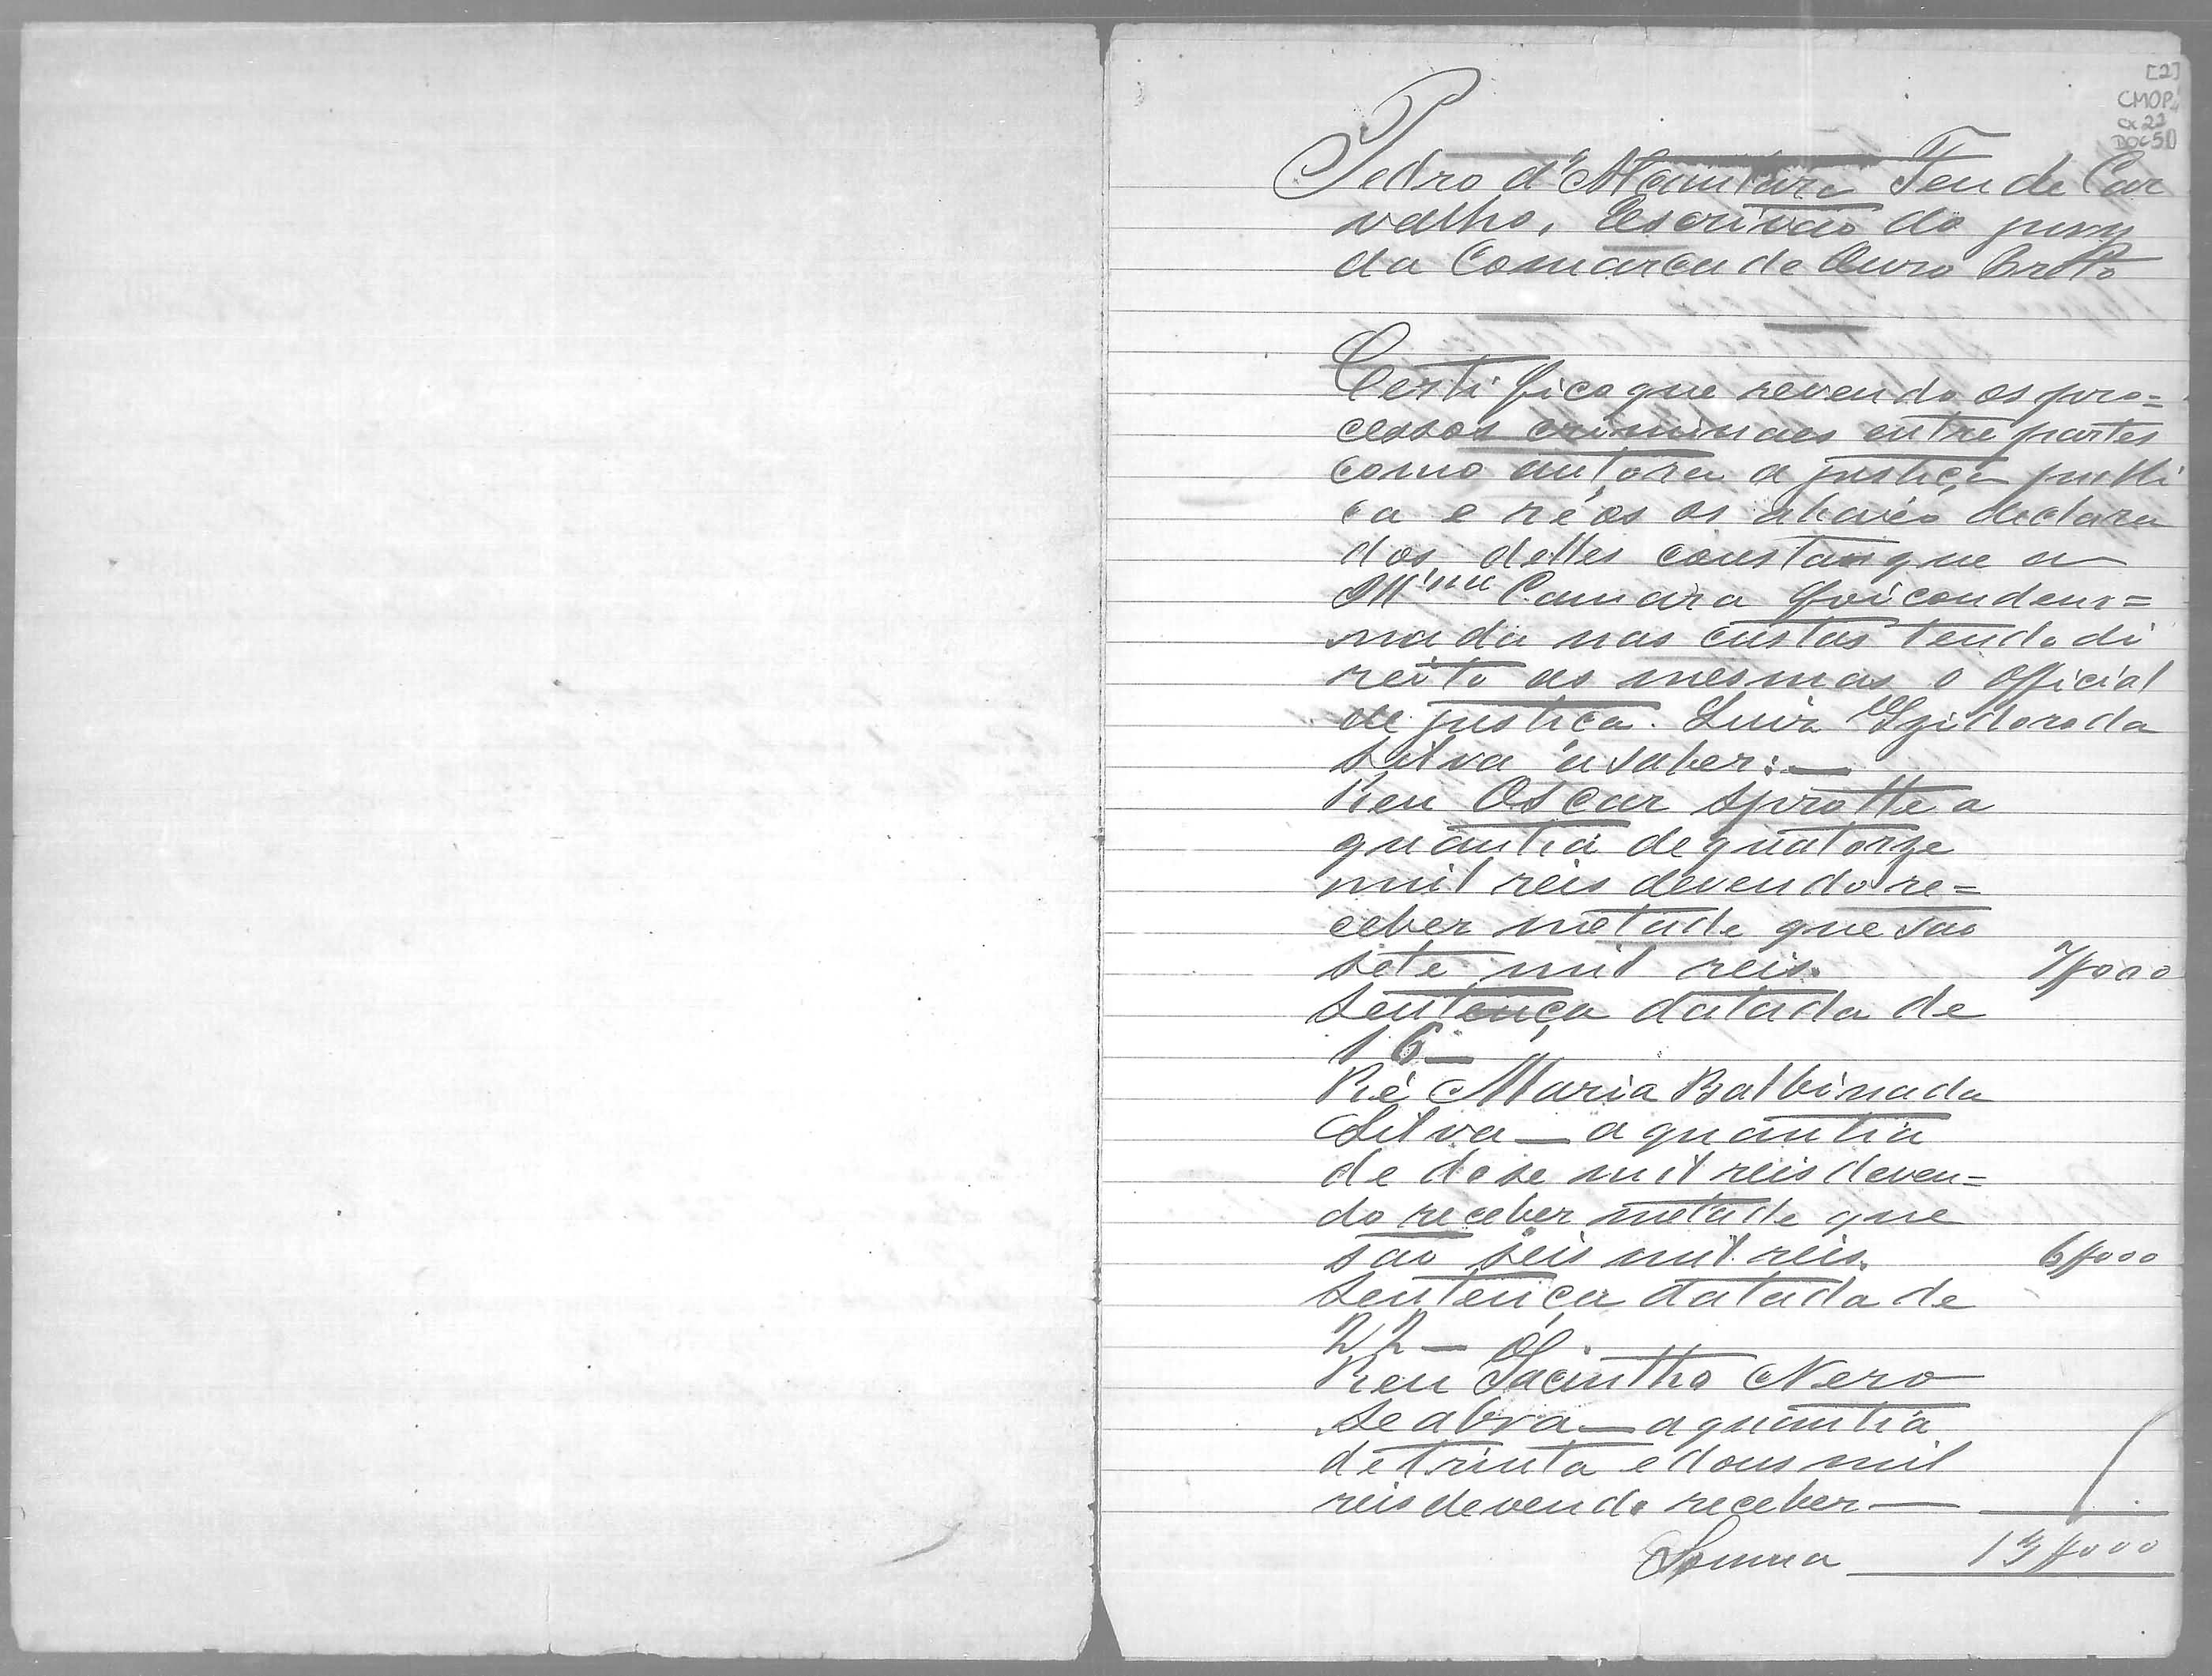 [2]
CMOP
cx 22
DOC 51
Pedro d'Alcantara Feu de Car
valho, Escrivão do jury
da Comarca de Ouro Preto
Certifico que revendo os pro=
cessos criminaes entre partes
como autora a justiça publi
ca e réos os abaixo declara
dos, delles constam que a
Ill.ma Camara foi condem=
nada nas custas tendo di
reito as mesmas o official
de justiça. Luiz Izidoro da
Silva á saber:—
Reu Oscar Sprotte a
quantia de quatorze
mil reis devendo re=
ceber metade que são
sete mil reis. 7$000
Sentença datada de
16—
Ré Maria Balbina da
Silva — a quantia
de dose mil reis deven=
do receber metade que
são seis mil reis. 6$000
Sentença datada de
22 —
Reu Jacintho Nero
Seabra — a quantia
de trinta e dous mil
reis devendo receber —
Somma — 13$000